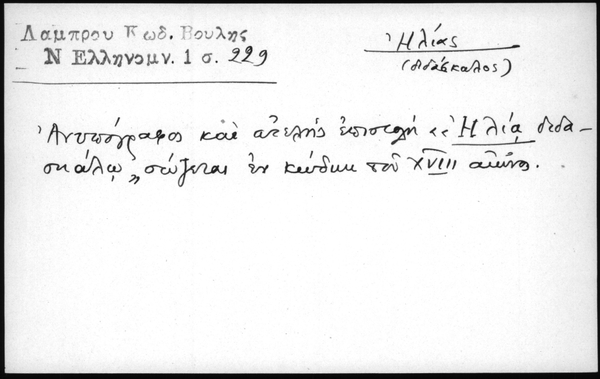 Λαμπρου Κωδ. Βουλης
Ν Ελληνομν. 1 σ. 229
Ἠλίας
(διδάσκαλος)
Ἀνυπόγραφος καὶ ἀτελὴς ἐπιστολὴ «Ἠλίᾳ διδα-
σκάλῳ» σώζεται ἐν κώδικι τοῦ XVIII αἰῶνος.